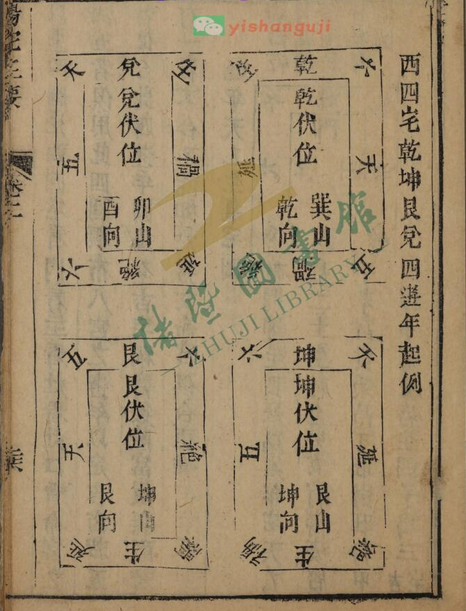 yishanguji
西四宅乾坤艮兌四遊年起例
六
乾
乾伏位
巽山
乾向
天
五
禍
生
延
絕
生
兌
兌伏位
卯山
酉向
禍
延
絕
六
五
天
坤
坤伏位
艮山
坤向
延
絕
生
禍
五
六
六
艮
艮伏位
坤山
艮向
絕
禍
生
延
天
五
陽宅三要
卷二
圖書館
SHUJI LIBRARY